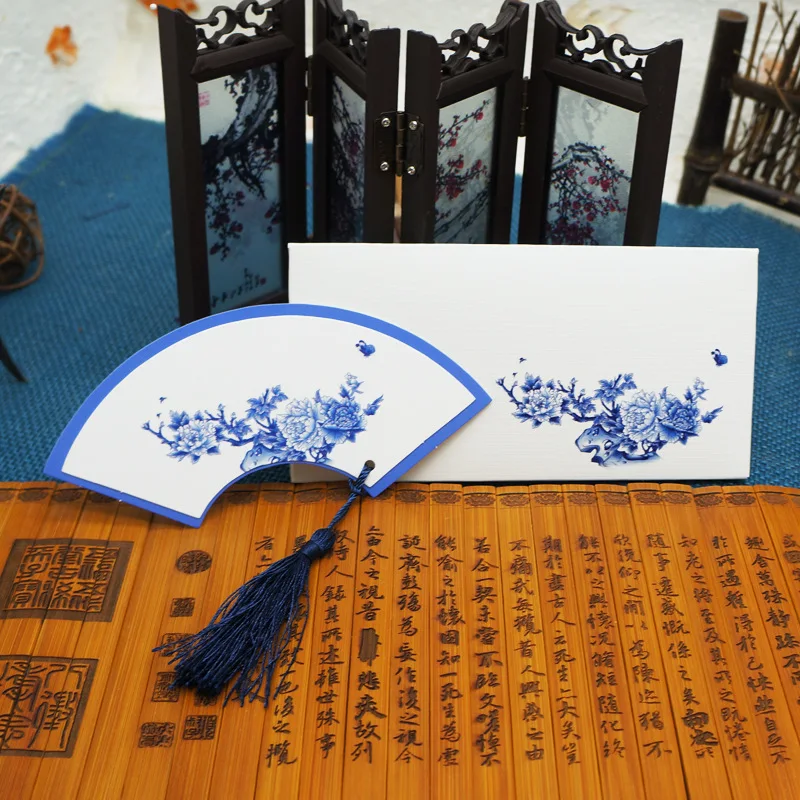 趣舍萬殊靜躁不
於所遇輒得於己快然自足不
知老之將至及其所之既惓情
隨事遷感慨係之矣向之所
欣俛仰之間以為陳迹猶不
能不以之興懷況脩短隨化終
期於盡古人云死生亦大矣豈
不痛哉每攬昔人興感之由
若合一契未嘗不臨文嗟悼不
能喻之於懷固知一死生為虛
誕齊彭殤為妄作後之視今
由今之視昔悲夫故列
時人錄其所述雖世殊事
致一也後之攬
者